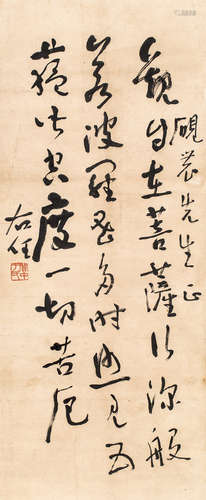 硯農先生正
觀自在菩薩行深般
若波羅蜜多時照見五
蘊皆空度一切苦厄
右任